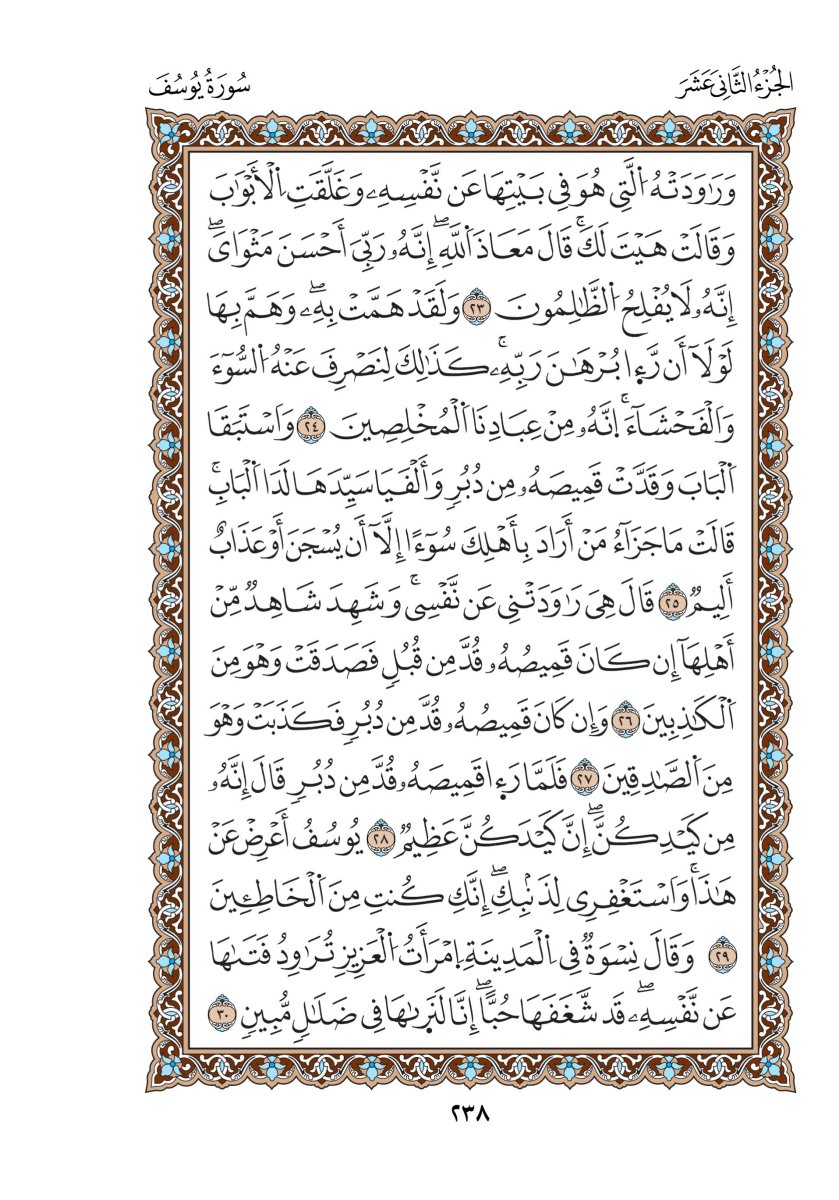 الجُزْءُ الثَّانِىَ عَشَرَ
سُورَةُ يُوسُفَ
وَرَٰوَدَتْهُ اُ۬لَّتِي هُوَ فِي بَيْتِهَا عَن نَّفْسِهِۦ وَغَلَّقَتِ اِ۬لْأَبْوَٰبَ
وَقَالَتْ هَيْتَ لَكَۚ قَالَ مَعَاذَ اَ۬للَّهِۖ إِنَّهُۥ رَبِّيَ أَحْسَنَ مَثْوَايَۖ
إِنَّهُۥ لَا يُفْلِحُ اُ۬لظَّٰلِمُونَ ٢٣ وَلَقَدْ هَمَّتْ بِهِۦۖ وَهَمَّ بِهَا
لَوْلَآ أَن رَّءِا بُرْهَٰنَ رَبِّهِۦۚ كَذَٰلِكَ لِنَصْرِفَ عَنْهُ اُ۬لسُّوٓءَ
وَالْفَحْشَآءَۚ اِ۪نَّهُۥ مِنْ عِبَادِنَا اَ۬لْمُخْلِصِينَ ٢٤ وَاَسْتَبَقَا
اَ۬لْبَابَ وَقَدَّتْ قَمِيصَهُۥ مِن دُبُرٍ وَأَلْفَيَا سَيِّدَهَا لَدَا اَ۬لْبَابِۚ
قَالَتْ مَا جَزَآءُ مَنْ أَرَادَ بِأَهْلِكَ سُوٓءًا إِلَّآ أَن يُسْجَنَ أَوْ عَذَابٌ
أَلِيمٌ ٢٥ قَالَ هِيَ رَٰوَدَتْنِي عَن نَّفْسِيۚ وَشَهِدَ شَاهِدٌ مِّنْ
أَهْلِهَآ إِن كَانَ قَمِيصُهُۥ قُدَّ مِن قُبُلٍ فَصَدَقَتْ وَهْوَ مِنَ
اَ۬لْكَٰذِبِينَ ٢٦ وَإِن كَانَ قَمِيصُهُۥ قُدَّ مِن دُبُرٍ فَكَذَبَتْ وَهْوَ
مِنَ اَ۬لصَّٰدِقِينَ ٢٧ فَلَمَّا رَءِا قَمِيصَهُۥ قُدَّ مِن دُبُرٍ قَالَ إِنَّهُۥ
مِن كَيْدِكُنَّۖ إِنَّ كَيْدَكُنَّ عَظِيمٌ ٢٨ يُوسُفُ أَعْرِضْ عَنْ
هَٰذَاۚ وَاَسْتَغْفِرِي لِذَنۢبِكِۖ إِنَّكِ كُنتِ مِنَ اَ۬لْخَاطِـِٔينَ
٢٩ وَقَالَ نِسْوَةٌ فِي اِ۬لْمَدِينَةِ اِ۪مْرَأَتُ اُ۬لْعَزِيزِ تُرَٰوِدُ فَتَىٰهَا
عَن نَّفْسِهِۦۖ قَد شَّغَفَهَا حُبًّاۖ إِنَّا لَنَرِىٰهَا فِي ضَلَٰلٍ مُّبِينٍ ٣٠
٢٣٨